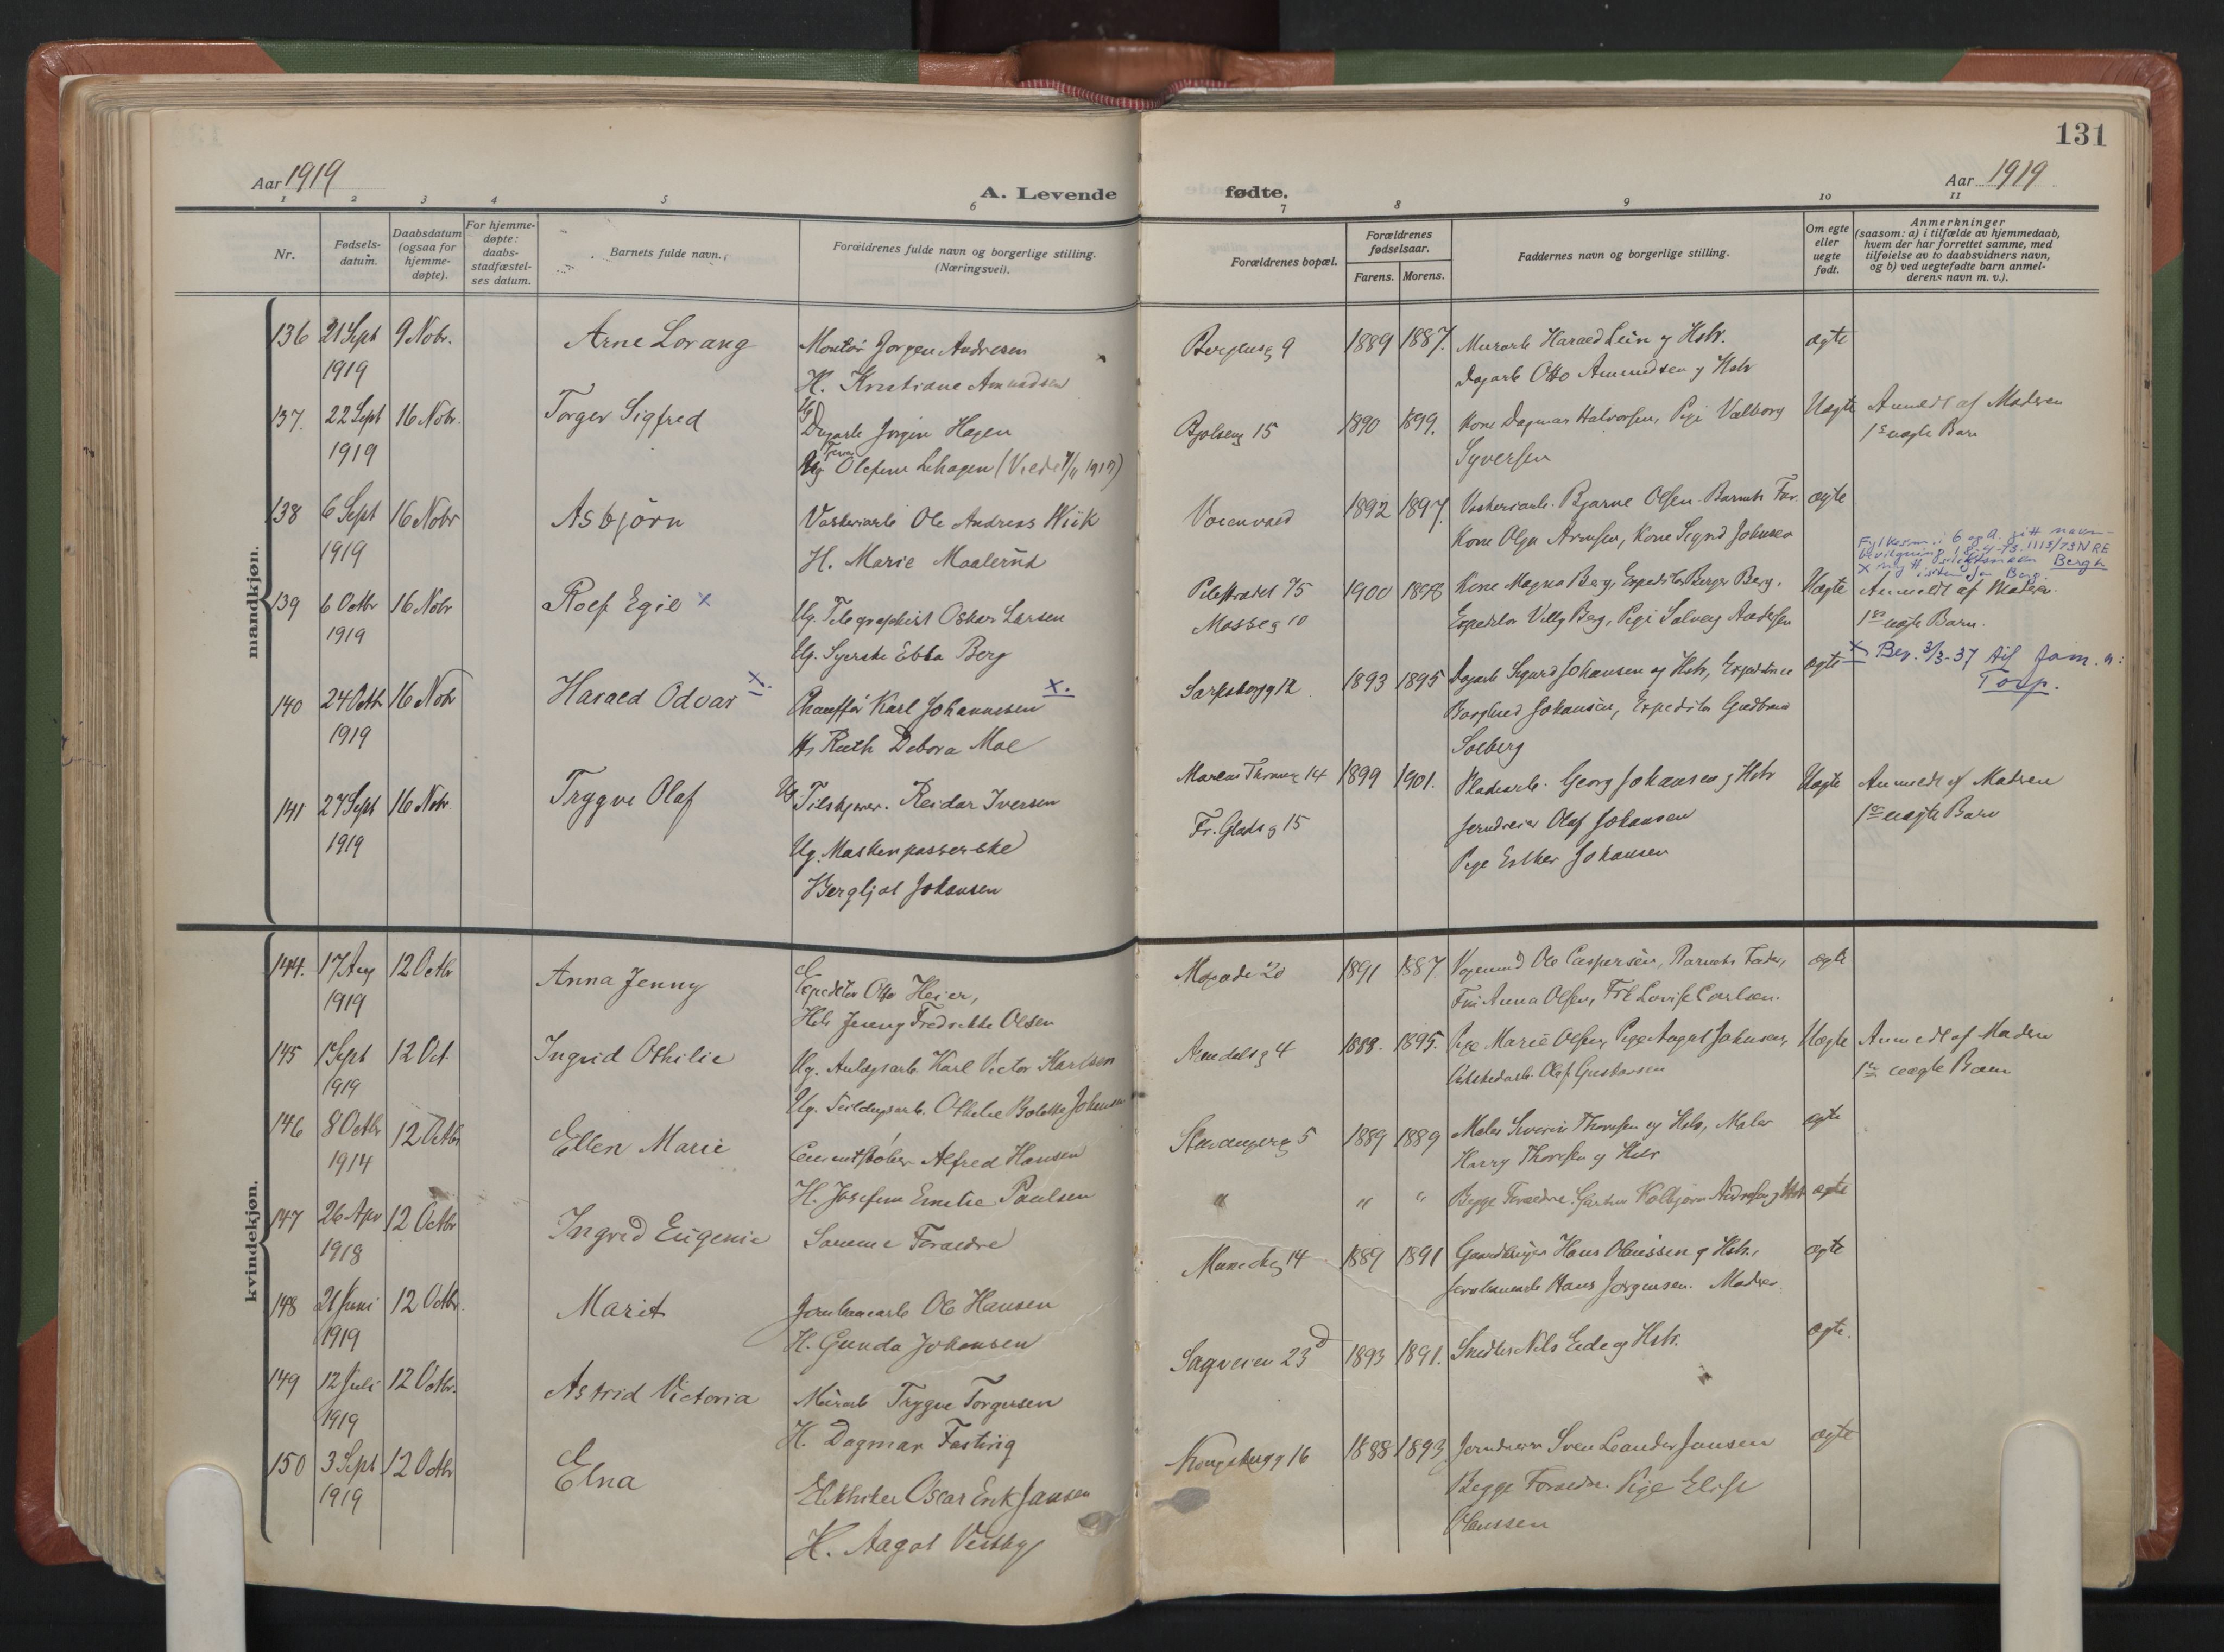 131
Aar 1919
A. Levende fødte.
Aar 1919
1 2 3 4 5 6 7 8 9 10 11
Nr.
Fødsels-
datum.
Daabsdatum
(ogsaa for
hjemme-
døpte).
For hjemme-
døpte:
daabs-
stadfæstel-
ses datum.
Barnets fulde navn.
Forældrenes fulde navn og borgerlige stilling.
(Næringsvei).
Forældrenes bopæl.
Forældrenes
fødselsaar.
Farens. Morens.
Faddernes navn og borgerlige stilling.
Om egte
eller
uegte
født.
Anmerkninger
(saasom: a) i tilfælde av hjemmedaab,
hvem der har forrettet samme, med
tilføielse av to daabsvidners navn,
og b) ved uegtefødte barn anmel-
derens navn m. v.).
mandkjøn.
136 21 Sept 9 Nobr. Arne Lorang Montør Jørgen Andresen 1889 1887. Murarb Harald og Hstr. ægte
1919 H. Kristiane Amundsen Dagarb Otto Amundsen og Hstr
137. 22 Sept 16 Nobr. Torger Sigfred Ug Dagarb Jørgen Hagen 15 1890 1899. Kone Dagmar Halvorsen, Pige Valborg Uægte Anmeldt af Moderen
1919 Ug Olefine (Viede 1917) Syversen 1ste uægte Barn
138 6 Sept 16 Nobr Asbjørn Ole Andreas Wiik 1892 1897. Bjarne Olsen. Barnets Far. ægte
1919 H. Marie Maalerud Kone Olga Arnesen, Kone Signd Johnsen
Fylkesm. i O og A. gitt navn-
bevilgning 18-4-73-1113/73 NRE
x nytt slektsnavn Bergh
istenfor Berg.
139 6 Octbr 16 Nobr Rolf Egil x Ug. Telegraphist Oskar Larsen Pilestrædet 75 1900 1898 Kone Magna Berg, Expeditør Berger Berg, Uægte Anmeldt af Moderen.
1919 Ug. Syerske Ebba Berg Mosseg 10 Expeditør Villy Berg, Pige Solveig Andersen 1ste uægte Barn.
140 24 Octbr 16 Nobr Harald Odvar x. Chauffør Karl Johannessen x. Sarpsborgg 12 1893 1895 Dagarb Sigurd Johansen og Hstr, Expeditrice ægte x Bev. 3/3-37 til fam. n:
Torp.
1919 Hs Ruth Debora Moe Borghild Johansen, Expeditør Gudbrand
Solberg
141 27 Sept 16 Nobr Trygve Olaf Ug. Reidar Iversen Marcus Thraneg 14 1899 1901. Pladearb. Georg Johansen og Hstr Uægte Anmeldt af Moderen
1919 Ug. Maskinpasserske Fr. Gladsg 15 Jerndreier Olaf Johansen 1ste uægte Barn
Bergljot Johansen Pige Esther Johansen
kvindekjøn.
144. 17 Aug 12 Octbr Anna Jenny Expeditør Otto Heier, 20 1891 1887 Ole Caspersen, Barnets Fader, ægte
1919 Hstr Jenny Fredrikke Olsen Fru Anna Olsen, Frk Lovise Carlsen.
145 1 Sept 12 Oct. Ingrid Othilie Ug. Anlægsarb. Karl Victor Karlsen Arendalsg 4 1888. 1895. Pige Marie Olsen, Pige Aagot Johnsen, Uægte Anmeldt af Moderen
1919 Ug. Seildugsarb. Othilie Bolette Johansen Olaf Gustavsen 1ste uægte Barn
146 8 Octbr 12 Octbr Ellen Marie Cementstøber Alfred Hansen Stavangerg 5 1889 1889 Maler Severin Thoresen og Hstr, Maler ægte
1914 H. Josefine Emilie Paulsen Harry Thoresen og Hstr
147 26 Apr 12 Octbr Ingrid Eugenie Samme Forældre " " " Begge Forældre. Kolbjørn Andresen og Hstr ægte
1918
148 21 Juni 12 Octbr. Marit Jernbanearb Ole Hansen 14 1889 1891 Hans Olaussen og Hstr, ægte
1919 H. Gunda Johansen Jernbanearb Hans Jørgensen. Moder
149 12 Juli 12 Octbr. Astrid Victoria Murarb Trygve Torgersen Sagveien 23 D 1893 1891. Snedker Nils Eide og Hstr. ægte.
1919 H. Dagmar Fasting
150 3 Sept 12 Octbr Elna Elektriker Oscar Erik Jansen Kongsbergg 16 1888 1893 Sven Leander Jansen ægte
1919 H. Aagot Vestby Begge Forældre. Pige Elise
Olaussen